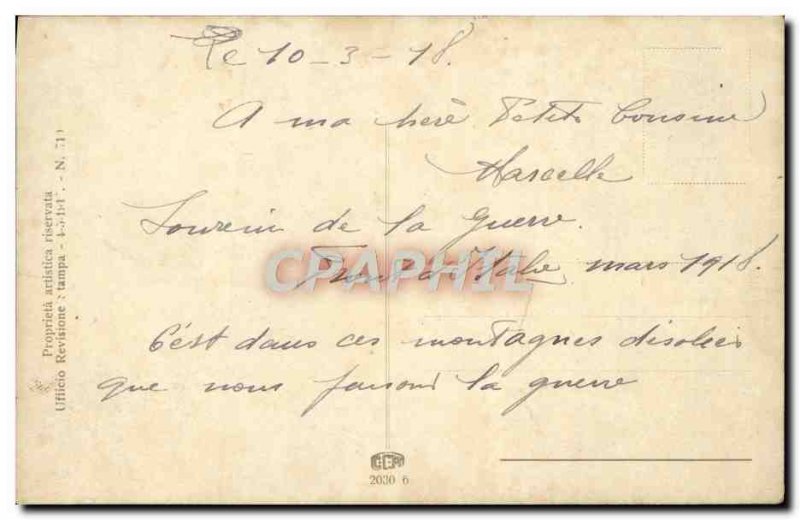 Le 10-3-18.
A ma chère Petite Cousine
Marcelle
Souvenir de la Guerre.
Front d'Italie, mars 1918.
C'est dans ces montagnes désolées
que nous faisons la guerre
Proprietà artistica riservata
Ufficio Revisione Stampa - - N.
CPAPHIL
2030 6